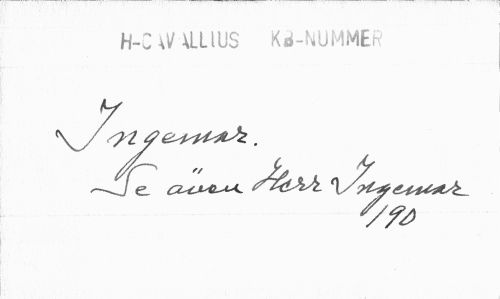 H-CAVALLIUS KB-NUMMER
Ingemar.
Se även Herr Ingemar
190